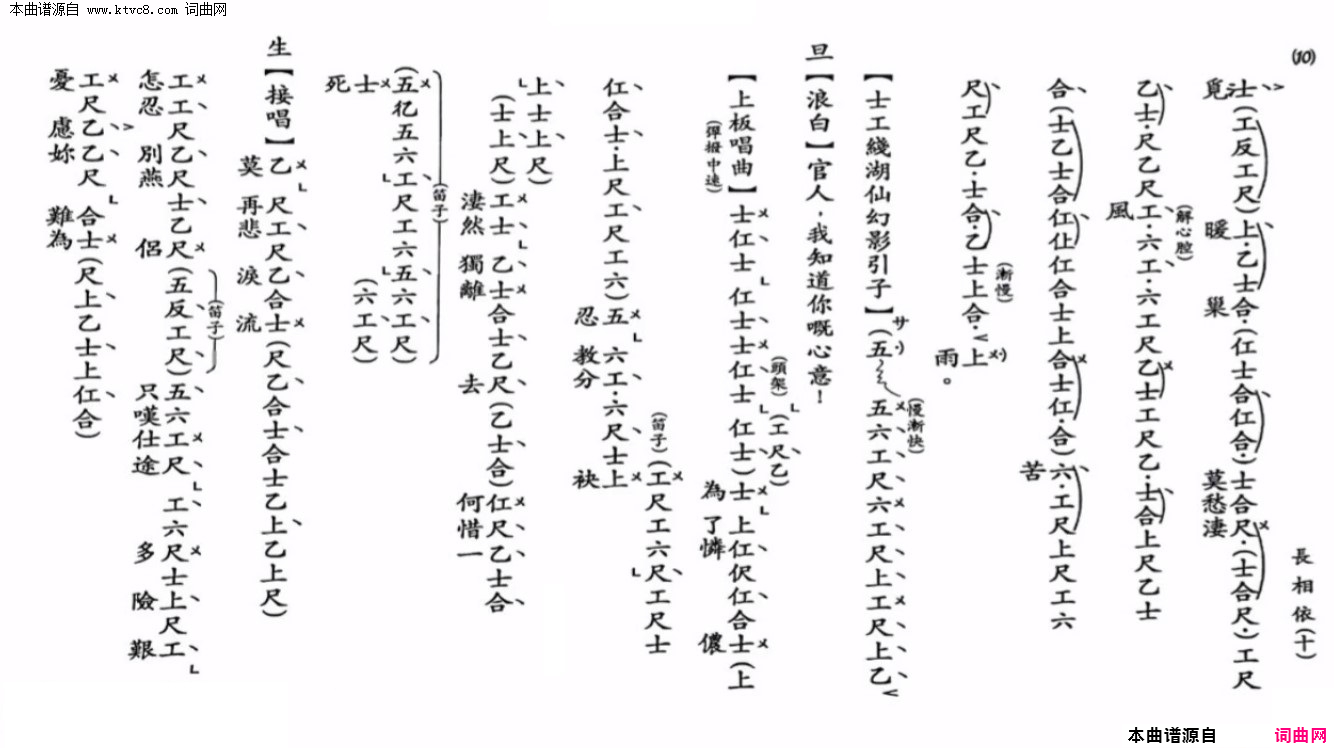 本曲谱源自 www.ktvc8.com 词曲网
(10)
長相依(十)
仩(工反工尺)上·乙士合·(仜士合仜合·)士合尺·(士合尺·)工尺
覓 暖 巢 莫愁淒
(解心腔)
乙士·尺乙尺工·六工·六工尺乙士工尺乙·士合上尺乙士
風
合(士乙士合仜仩仜合士上合士仜·合)六·工尺上尺工六
苦
(漸慢)
尺工尺乙·士合·乙士上合·上
雨。
【士工綫湖仙幻影引子】(サ五 五六工尺六工尺上工尺上乙
(慢漸快)
旦【浪白】官人,我知道你嘅心意!
(頭架)(工尺乙)
【上板唱曲】士仜士 仜士士仜士 仜士)士 上仜伬仜合士(上
(彈撥中速) 為了憐 儂
(笛子)(工尺工六尺工尺士
仜合士·上尺工尺工六)五 六工·六尺士上
忍 教分 袂
上士上尺)
(士上尺)工士 乙士合士乙尺(乙士合)仜尺乙士合
淒然 獨離 去 何惜一
(笛子)
(五亿五六工尺工六五六工尺)
士 (六工尺)
死
生【接唱】乙 尺工尺乙合士(尺乙合士合士乙上乙上尺)
莫 再悲 淚 流
(笛子)
工工尺乙尺士乙尺(五反工尺)五六工尺 工六尺士上尺工
怎忍 別燕 侶 只嘆仕途 多 險 艱
工尺乙乙尺 合士(尺上乙士上仜合)
憂 慮妳 難為
本曲谱源自 词曲网